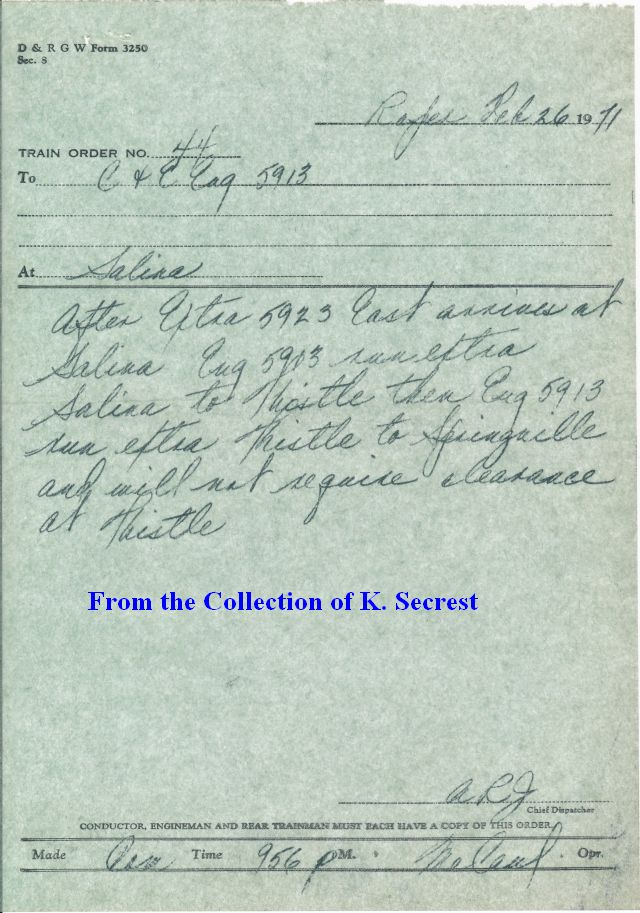 D & R G W Form 3250
Sec. s
Feb 26 1971
TRAIN ORDER NO. 44
To C & E Eng 5913
At Salina
After Extra 5923 East arrives at
Salina Eng 5913 run extra
Salina to Thistle then Eng 5913
run extra Thistle to Springville
and will not require clearance
at Thistle
From the Collection of K. Secrest
A R J
Chief Dispatcher
CONDUCTOR, ENGINEMAN AND REAR TRAINMAN MUST EACH HAVE A COPY OF THIS ORDER.
Made Com Time 956 P M. Opr.